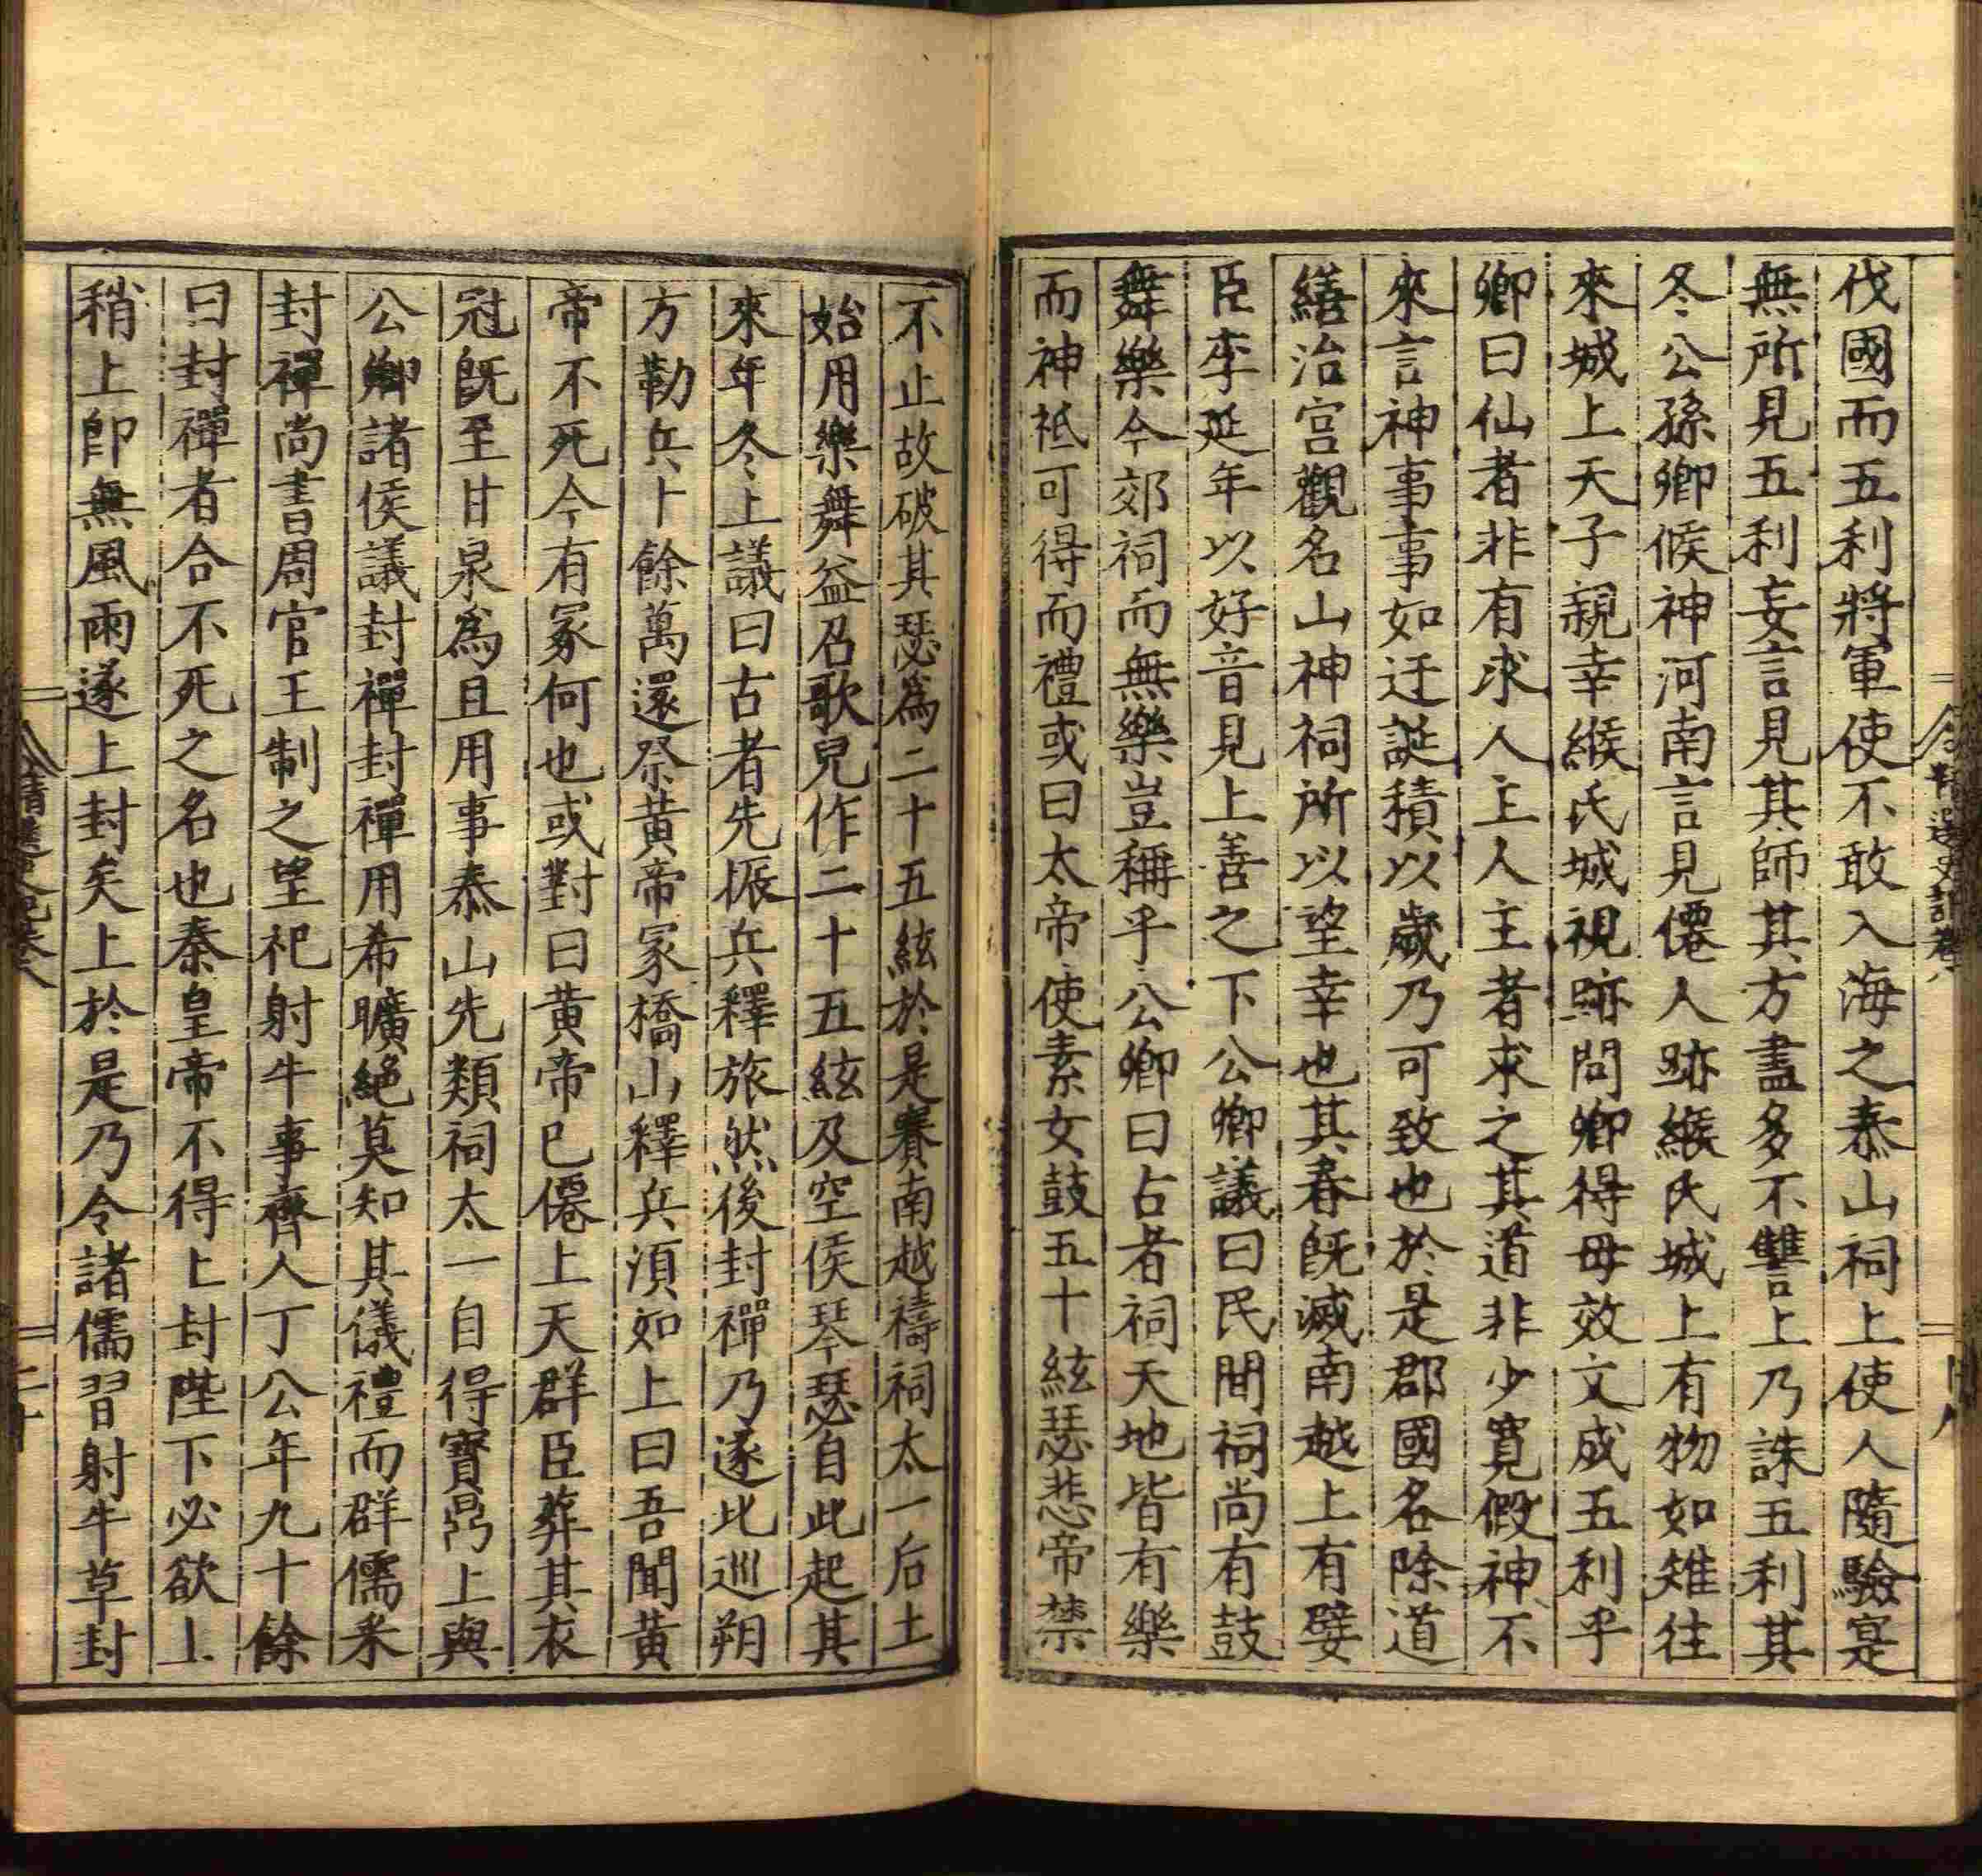 伐國而五利將軍使不敢入海之泰山祠上使人隨驗寔
無所見五利妄言見其師其方盡多不讐上乃誅五利其
冬公孫卿候神河南言見僊人跡緱氏城上有物如雉往
來城上天子親幸緱氏城視跡問卿得毋效文成五利乎
卿曰仙者非有求人主人主者求之其道非少寬假神不
來言神事事如迂誕積以歲乃可致也於是郡國各除道
繕治宮觀名山神祠所以望幸也其春既滅南越上有嬖
臣李延年以好音見上善之下公卿議曰民間祠尚有鼓
舞樂今郊祠而無樂豈稱乎公卿曰古者祠天地皆有樂
而神祗可得而禮或曰太帝使素女鼓五十絃瑟悲帝禁
不止故破其瑟為二十五絃於是賽南越禱祠太一后土
始用樂舞益召歌兒作二十五絃及空侯琴瑟自此起其
來年冬上議曰古者先振兵釋旅然後封禪乃遂北巡朔
方勒兵十餘萬還祭黃帝冢橋山釋兵須如上曰吾聞黃
帝不死今有冢何也或對曰黃帝已僊上天群臣葬其衣
冠既至甘泉為且用事泰山先類祠太一自得寶鼎上與
公卿諸侯議封禪封禪用希曠絕莫知其儀禮而群儒采
封禪尚書周官王制之望祀射牛事齊人丁公年九十餘
曰封禪者合不死之名也秦皇帝不得上封陛下必欲上
稍上即無風雨遂上封矣上於是乃令諸儒習射牛草封